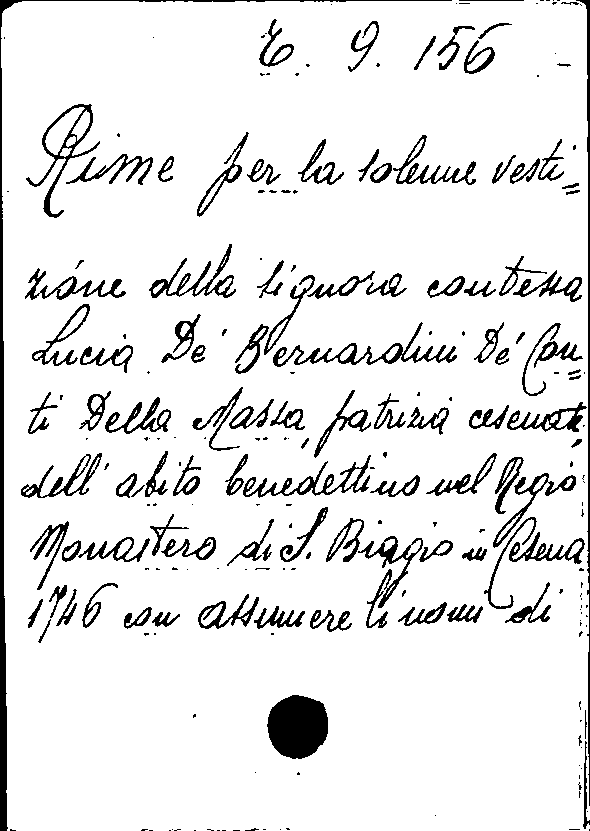 E. 9. 156
Rime per la solenne vesti=
zione della signora contessa
Lucia De' Bernardini De' Con=
ti Della Massa, patrizia cesenate,
dell' abito benedettino nel Regio
Monastero di S. Biagio in Cesena
1746 con assumere li nomi di